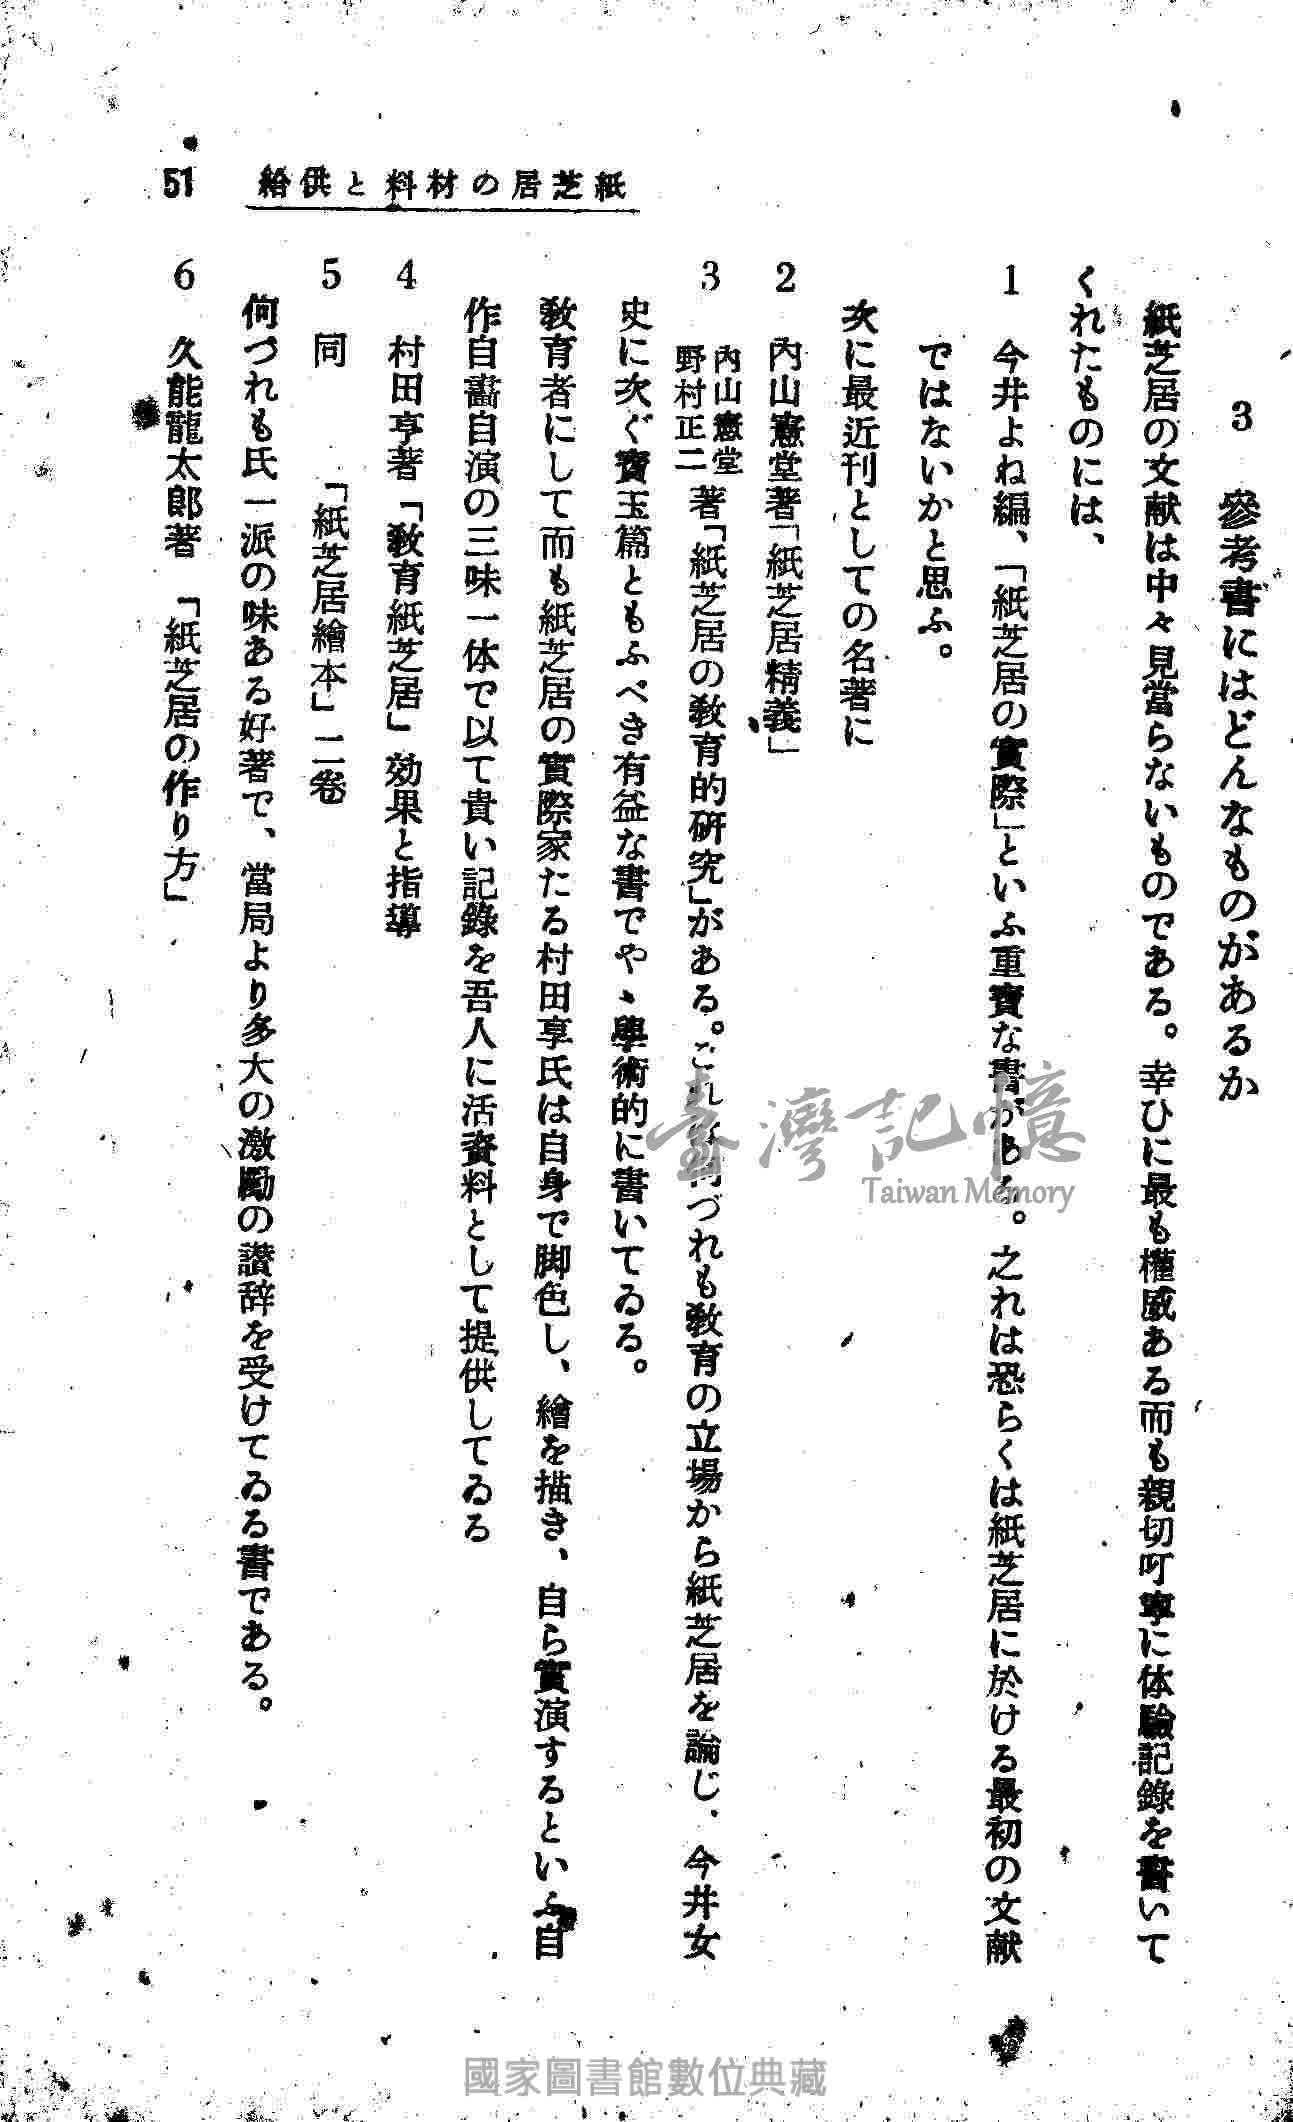 51 給供と料材の居芝紙
3 參考書にはどんなものがあるか
紙芝居の文献は中々見當らないものである。幸ひに最も權威ある而も親切叮寧に体驗記錄を書いて
くれたものには、
1 今井よね編、「紙芝居の實際」といふ重寶な書がある。之れは恐らくは紙芝居に於ける最初の文献
ではないかと思ふ。
次に最近刊としての名著に
2 內山憲堂著「紙芝居精義」
3 內山憲堂 野村正二 著「紙芝居の敎育的硏究」がある。これ等何づれも敎育の立場から紙芝居を論じ、今井女
史に次ぐ寶玉篇ともふべき有益な書でやゝ學術的に書いてゐる。
敎育者にして而も紙芝居の實際家たる村田享氏は自身で脚色し、繪を描き、自ら實演するといふ自
作自畵自演の三味一体で以て貴い記錄を吾人に活資料として提供してゐる
4 村田亨著「敎育紙芝居」効果と指導
5 同 「紙芝居繪本」二卷
何づれも氏一派の味ある好著で、當局より多大の激勵の讃辞を受けてゐる書である。
6 久能龍太郎著 「紙芝居の作り方」
臺灣記憶
Taiwan Memory
國家圖書館數位典藏